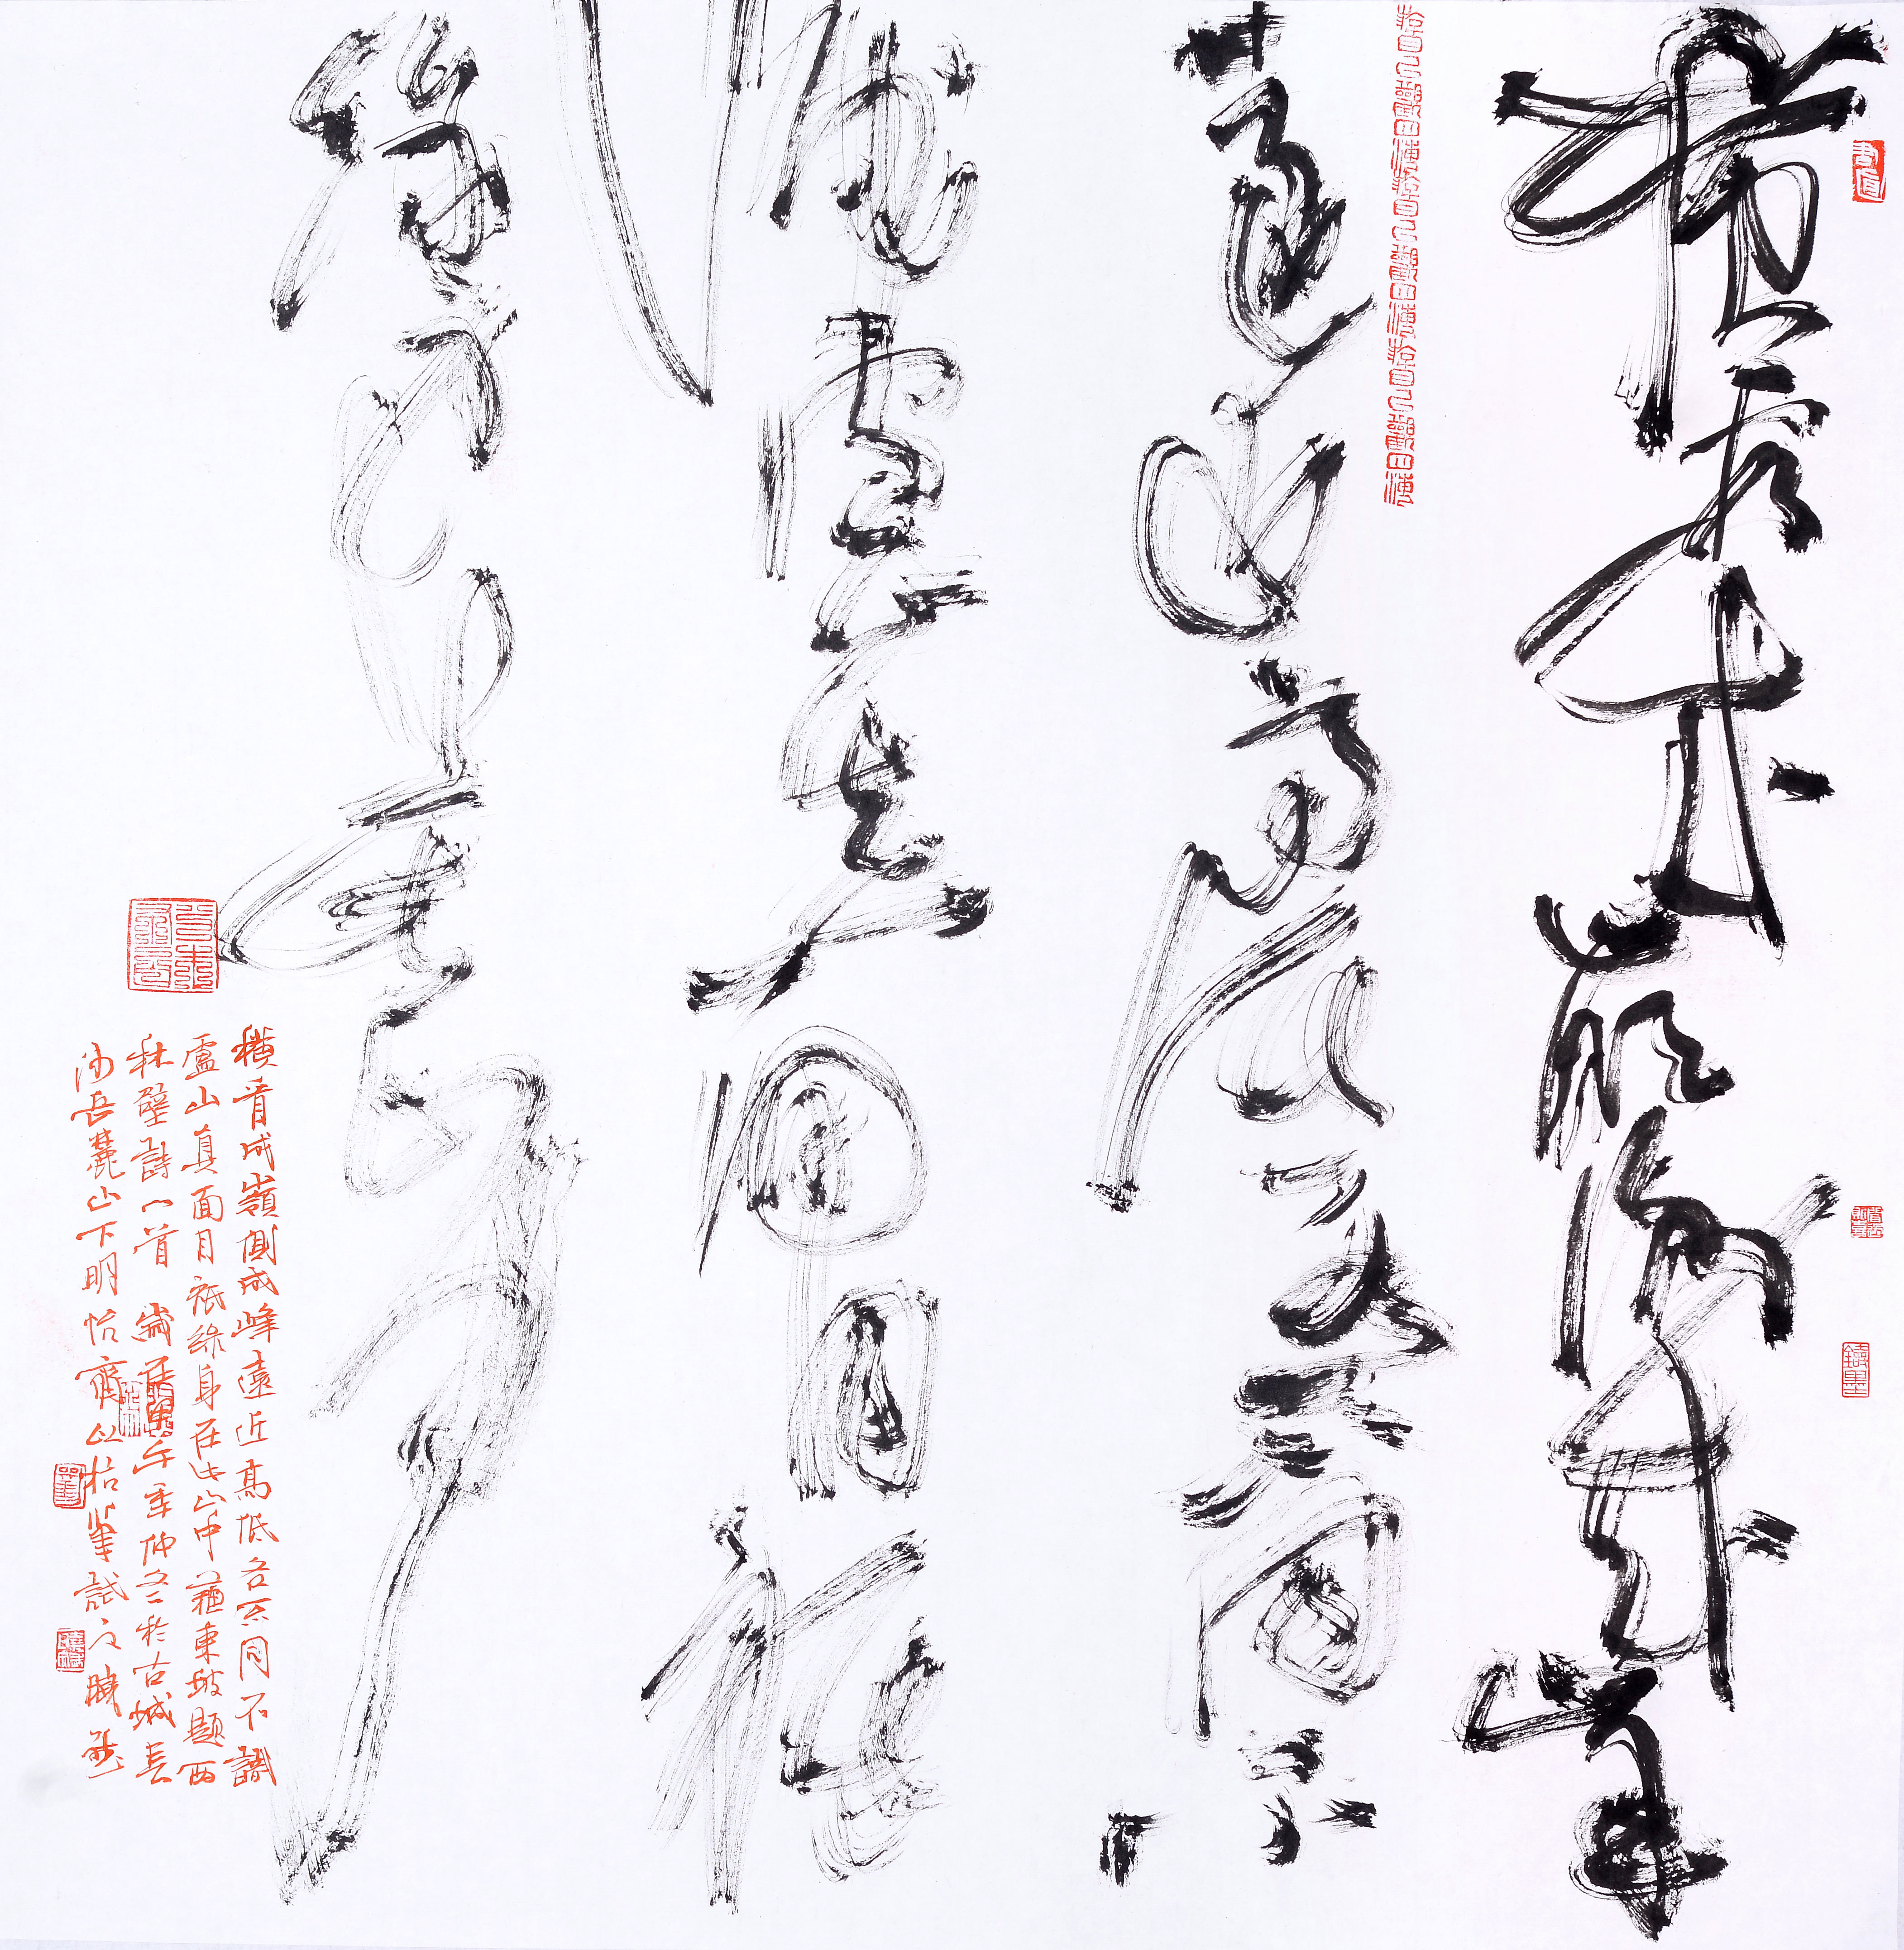 橫看成嶺側成峰
遠近高低各不同不
識廬山真面目祇
緣身在此山中
橫看成嶺側成峰遠近高低各不同不識
廬山真面目祇緣身在此山中蘇東坡題西
林壁詩一首 歲在甲午年仲冬於古城長
沙岳麓山下明怡齋以枯筆試之